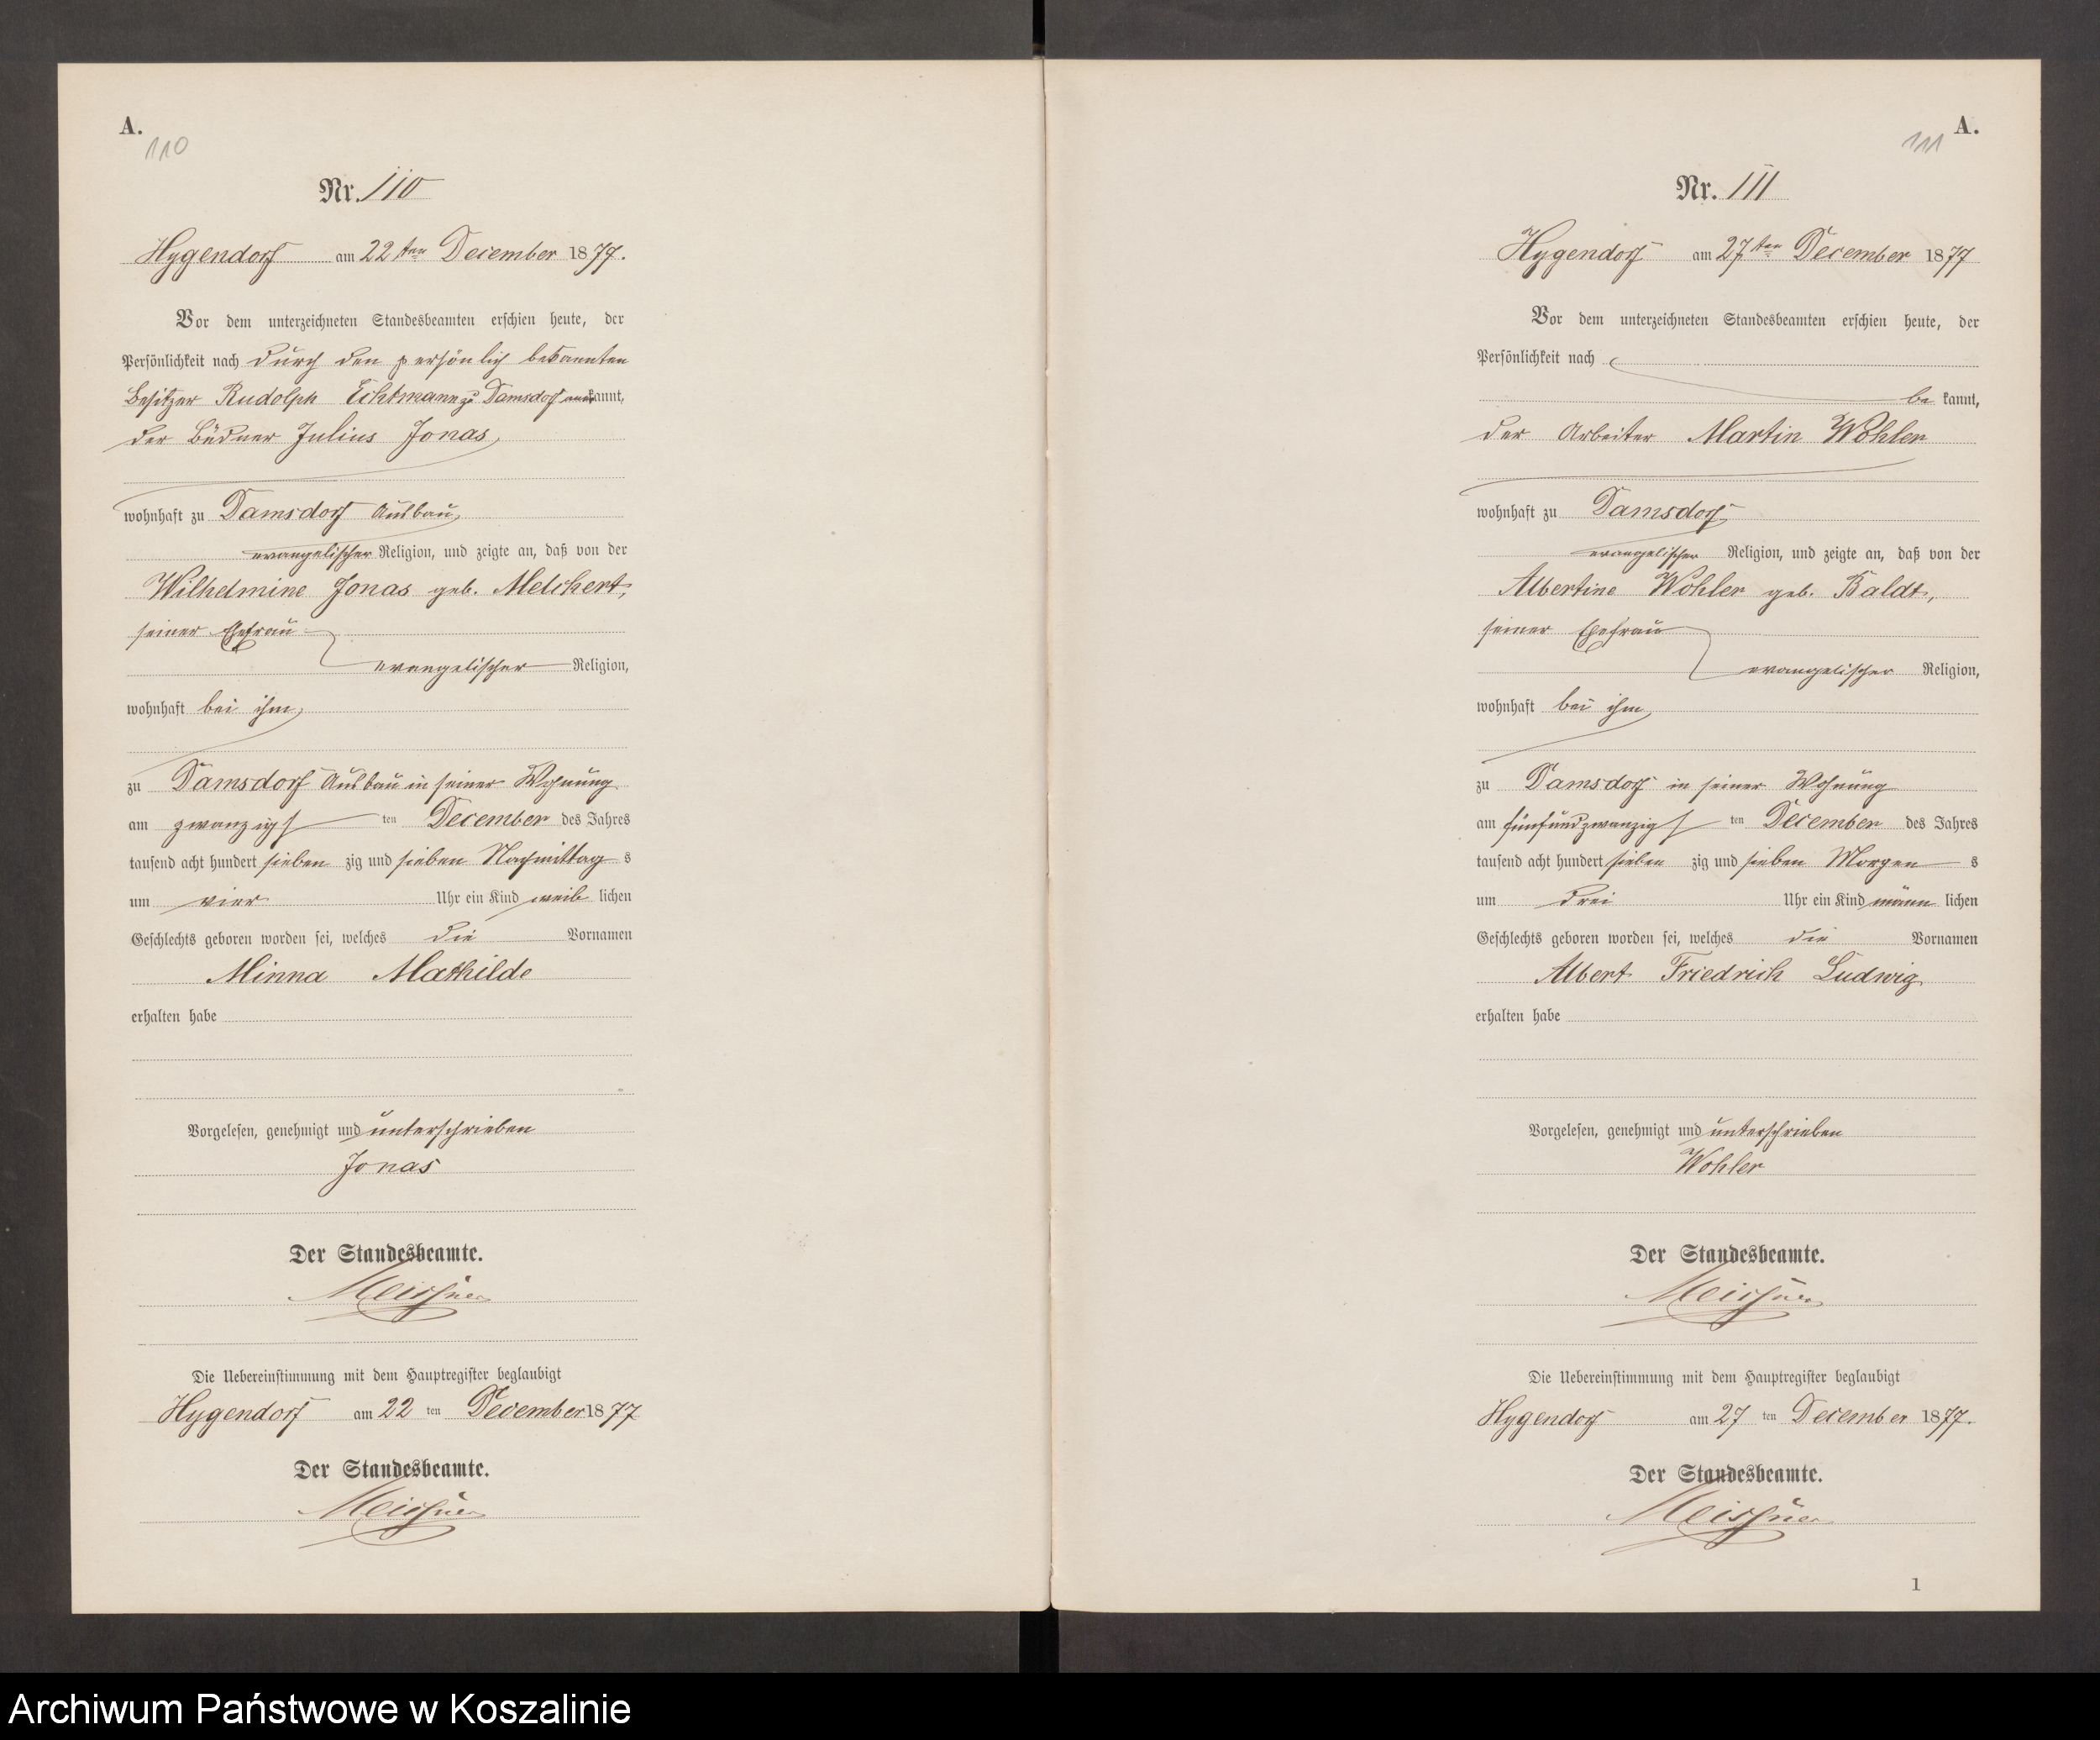 A.
110
Nr. 110
Hygendorf am 22ten December 1877.
Vor dem unterzeichneten Standesbeamten erschien heute, der
Persönlichkeit nach durch den persönlich bekannten
Besitzer Rudolph Echtmann zu Damsdorf anerkannt,
der Büdner Julius Jonas,
wohnhaft zu Damsdorf Ausbau,
evangelischer Religion, und zeigte an, daß von der
Wilhelmine Jonas geb. Melchert,
seiner Ehefrau
evangelischer Religion,
wohnhaft bei ihm,
zu Damsdorf Ausbau in seiner Wohnung
am zwanzigsten December des Jahres
tausend acht hundert siebenzig und sieben Nachmittags
um vier Uhr ein Kind weiblichen
Geschlechts geboren worden sei, welches die Vornamen
Minna Mathilde
erhalten habe
Vorgelesen, genehmigt und unterschrieben
Jonas
Der Standesbeamte.
Meissner
Die Uebereinstimmung mit dem Hauptregister beglaubigt
Hygendorf am 22ten December 1877
Der Standesbeamte.
Meissner
A.
111
Nr. 111
Hygendorf am 27ten December 1877
Vor dem unterzeichneten Standesbeamten erschien heute, der
Persönlichkeit nach
bekannt,
der Arbeiter Martin Wohler
wohnhaft zu Damsdorf
evangelischer Religion, und zeigte an, daß von der
Albertine Wohler geb. Baldt,
seiner Ehefrau
evangelischer Religion,
wohnhaft bei ihm,
zu Damsdorf in seiner Wohnung
am fünfundzwanzigsten December des Jahres
tausend acht hundert siebenzig und sieben Morgens
um drei Uhr ein Kind männlichen
Geschlechts geboren worden sei, welches die Vornamen
Albert Friedrich Ludwig
erhalten habe
Vorgelesen, genehmigt und unterschrieben
Wohler
Der Standesbeamte.
Meissner
Die Uebereinstimmung mit dem Hauptregister beglaubigt
Hygendorf am 27ten December 1877.
Der Standesbeamte.
Meissner
1
Archiwum Państwowe w Koszalinie